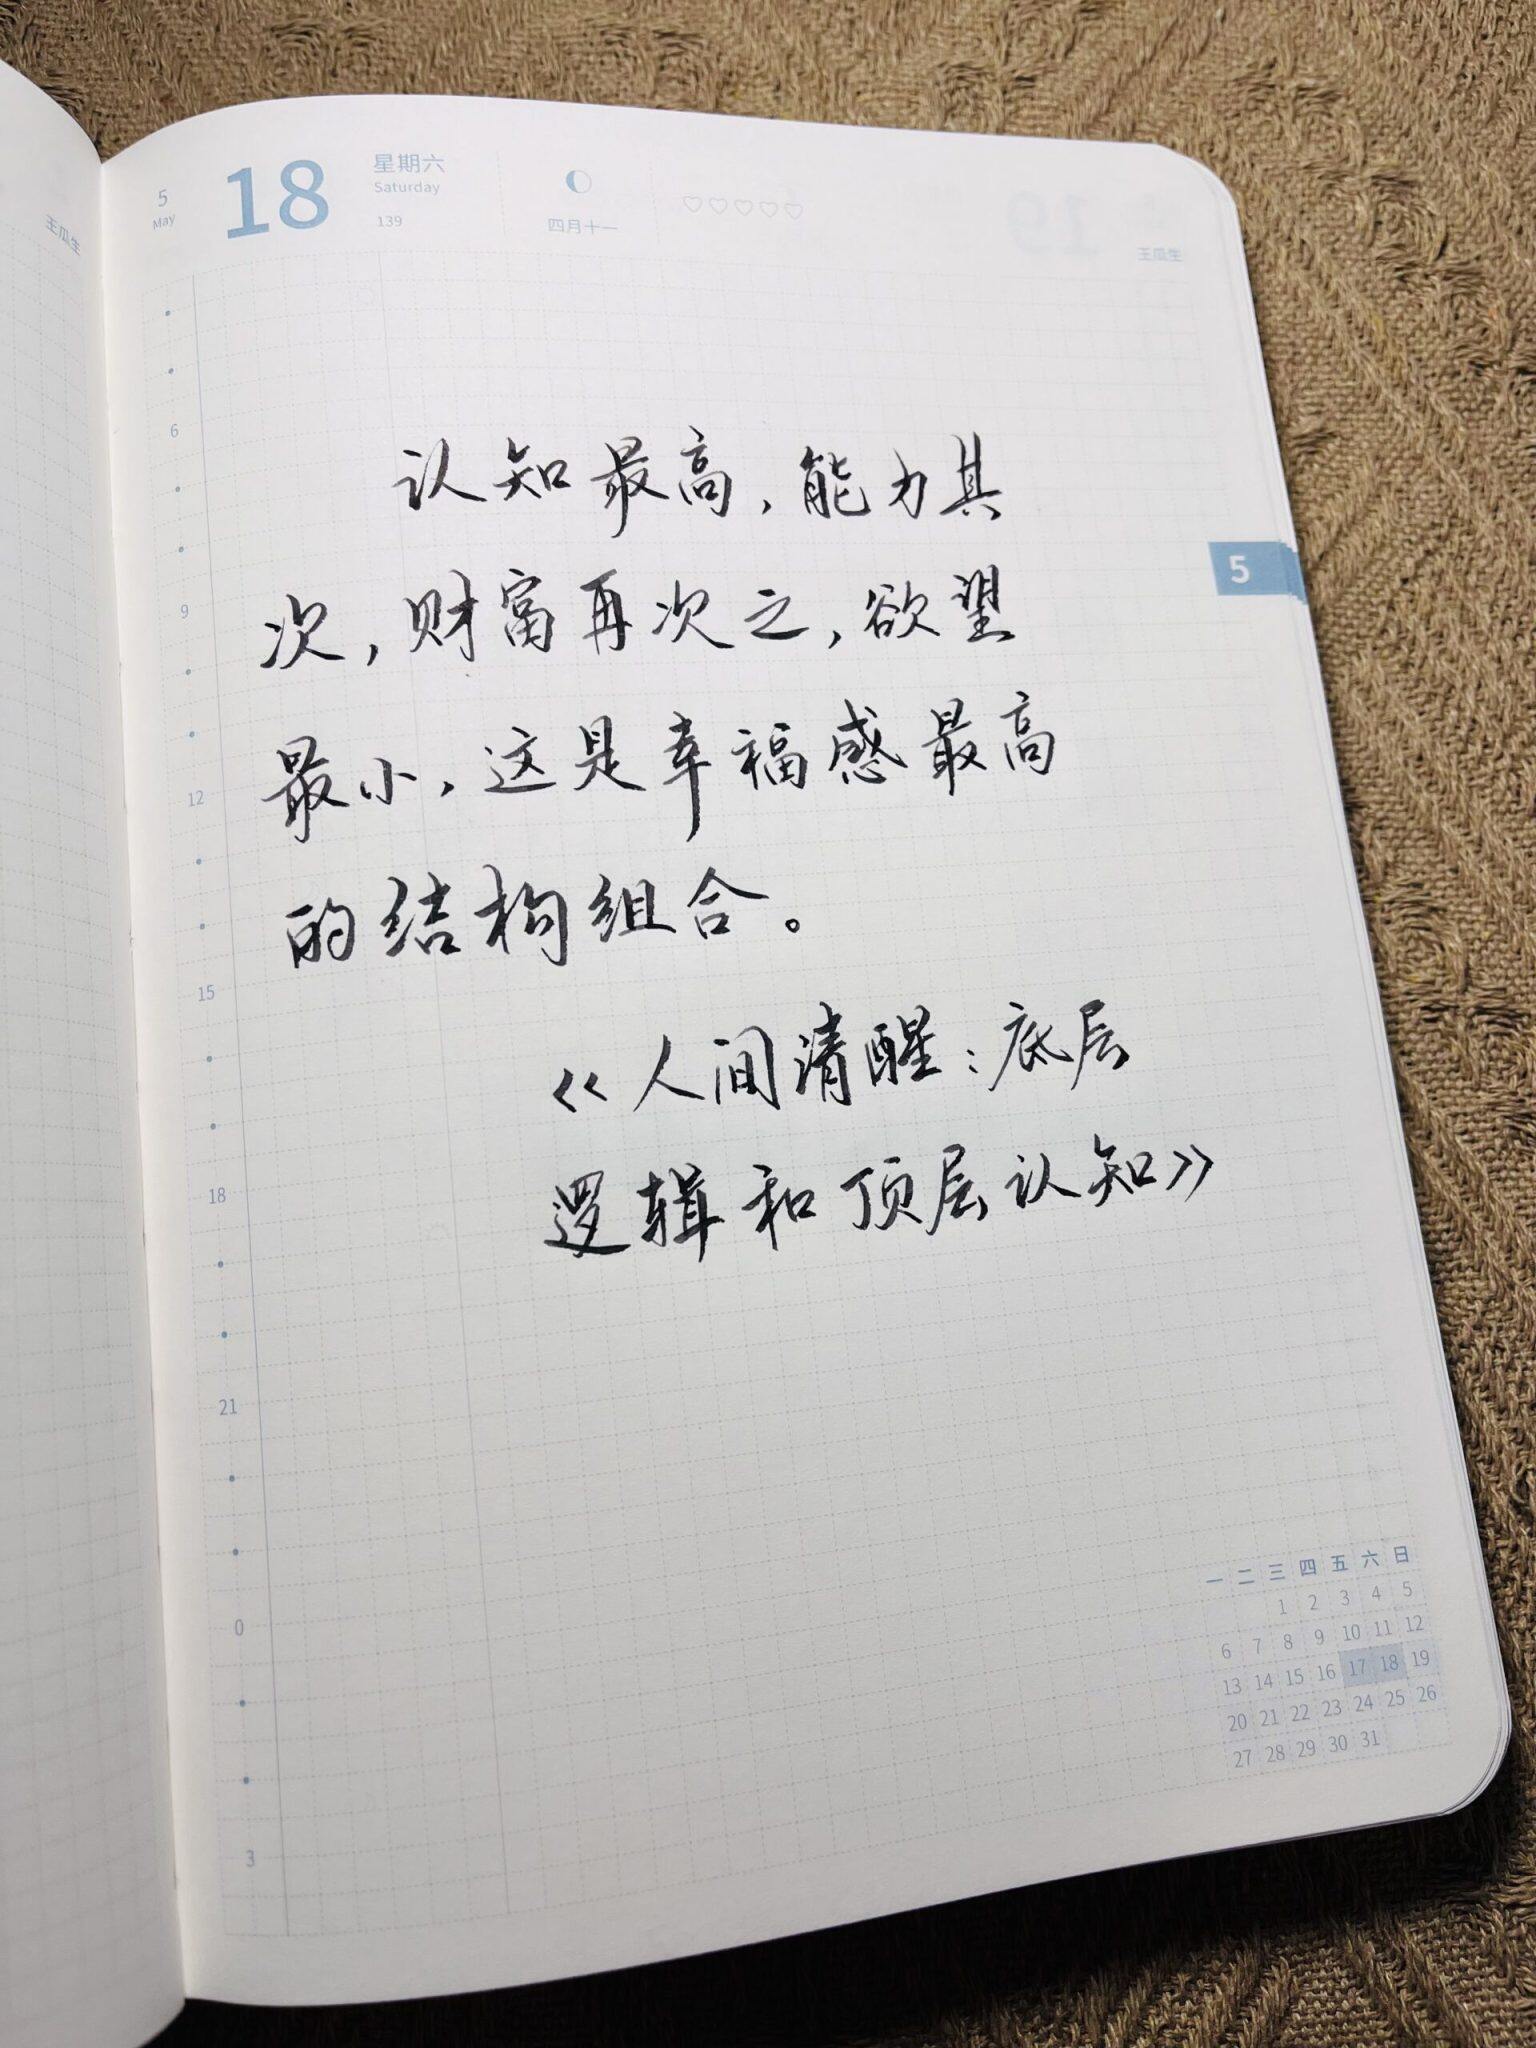 王瓜生
5
May
18
星期六
Saturday
139
四月十一
王瓜生
6
认知最高,能力其
9
次,财富再次之,欲望
5
12
最小,这是幸福感最高
15
的结构组合。
《人间清醒:底层
18
逻辑和顶层认知》
21
0
3
一 二 三 四 五 六 日
1 2 3 4 5
6 7 8 9 10 11 12
13 14 15 16 17 18 19
20 21 22 23 24 25 26
27 28 29 30 31